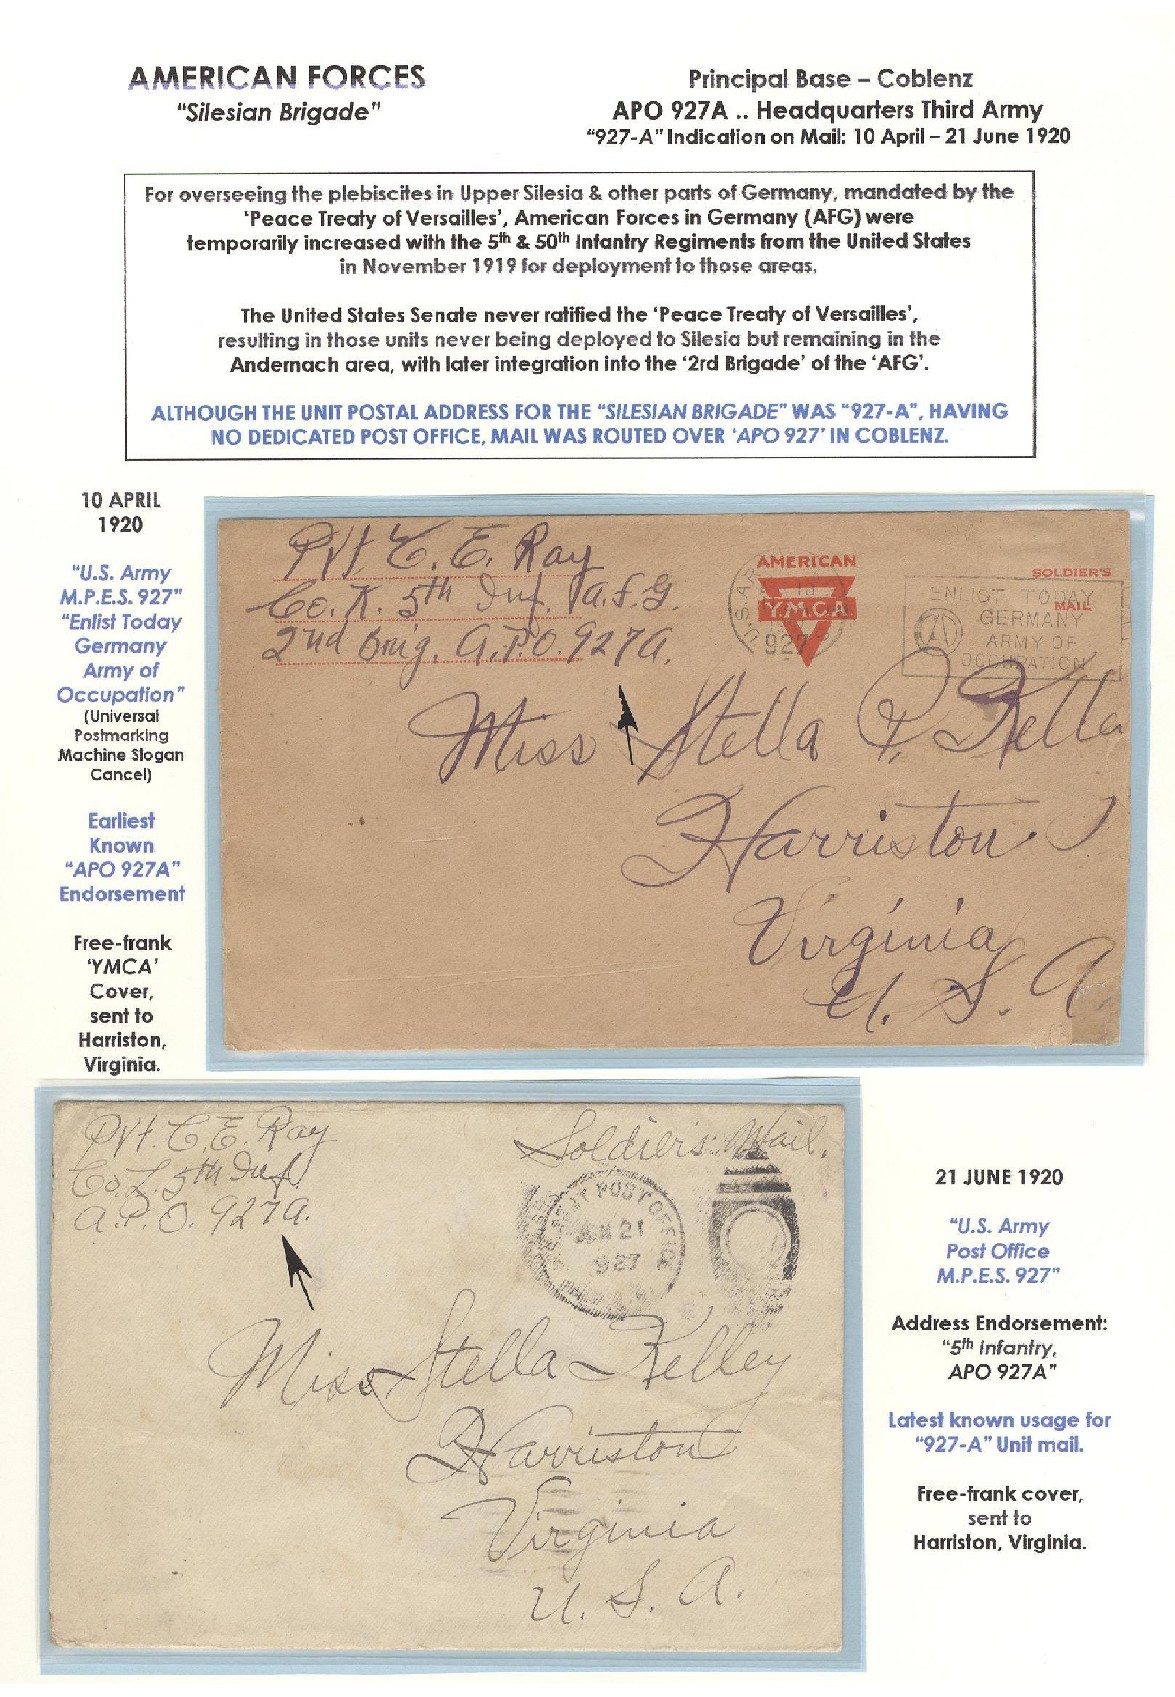 AMERICAN FORCES
"Silesian Brigade"
Principal Base – Coblenz
APO 927A .. Headquarters Third Army
"927-A" Indication on Mail: 10 April – 21 June 1920
For overseeing the plebiscites in Upper Silesia & other parts of Germany, mandated by the
'Peace Treaty of Versailles', American Forces in Germany (AFG) were
temporarily increased with the 5th & 50th Infantry Regiments from the United States
in November 1919 for deployment to those areas.
The United States Senate never ratified the 'Peace Treaty of Versailles',
resulting in those units never being deployed to Silesia but remaining in the
Andernach area, with later integration into the '2rd Brigade' of the 'AFG'.
ALTHOUGH THE UNIT POSTAL ADDRESS FOR THE "SILESIAN BRIGADE" WAS "927-A", HAVING
NO DEDICATED POST OFFICE, MAIL WAS ROUTED OVER 'APO 927' IN COBLENZ.
10 APRIL
1920
"U.S. Army
M.P.E.S. 927"
"Enlist Today
Germany
Army of
Occupation"
(Universal
Postmarking
Machine Slogan
Cancel)
Earliest
Known
"APO 927A"
Endorsement
Free-frank
'YMCA'
Cover,
sent to
Harriston,
Virginia.
Pvt C. E. Ray
Co. K. 5th Inf. A.F.G.
2nd Brig. A.P.O. 927A.
AMERICAN
Y.M.C.A.
U.S.AR
10
927
SOLDIER'S
MAIL
ENLIST TODAY
GERMANY
ARMY OF
OCCUPATION
Miss Stella P. Kelle
Harriston
Virginia
U. S. A.
Pvt. C. E. Ray
Co. L. 5th Inf
A.P.O. 927A.
Soldier's Mail.
POST OFFICE
JUN 21
927
Miss Stella Kelley
Harriston
Virginia
U. S. A.
21 JUNE 1920
"U.S. Army
Post Office
M.P.E.S. 927"
Address Endorsement:
"5th Infantry,
APO 927A"
Latest known usage for
"927-A" Unit mail.
Free-frank cover,
sent to
Harriston, Virginia.